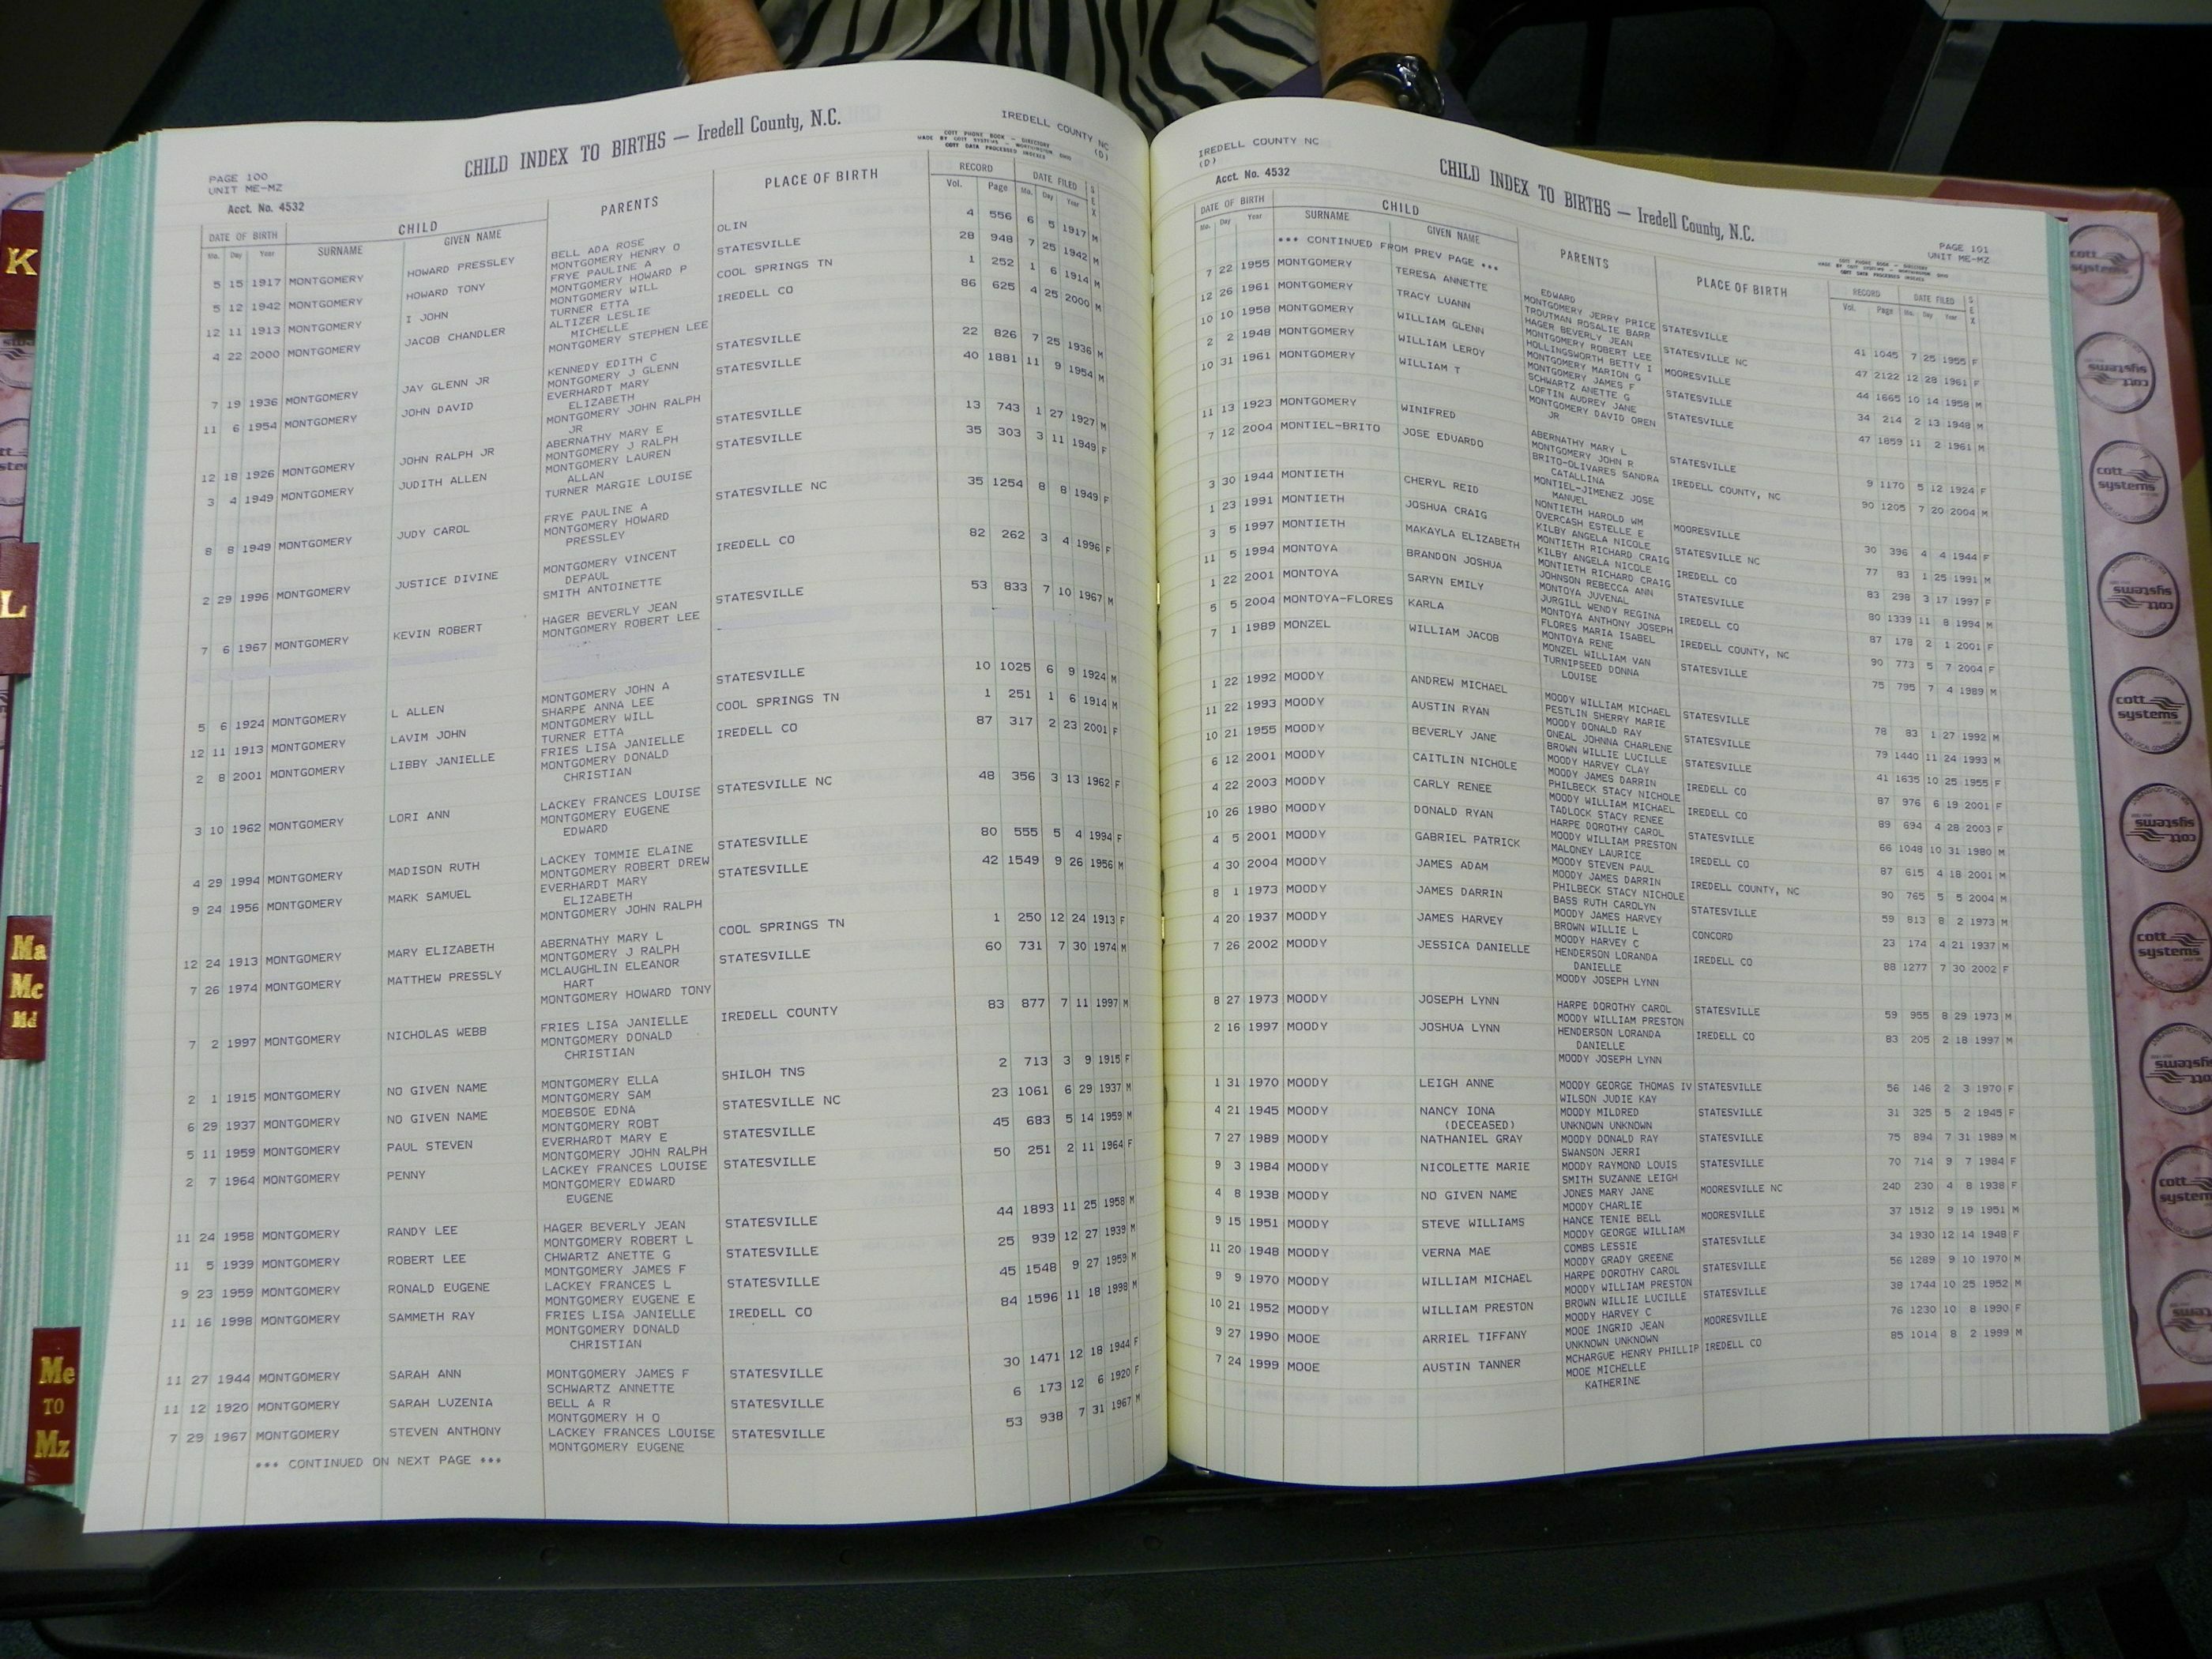 K
L
Ma
Mc
Md
Me
TO
Mz
PAGE 100
UNIT ME-MZ
Acct. No. 4532
CHILD INDEX TO BIRTHS — Iredell County, N.C.
IREDELL COUNTY NC
(D)
COTT PHONE BOOK - DIRECTORY
MADE BY COTT SYSTEMS - WORTHINGTON OHIO
COTT DATA PROCESSED INDEXES
DATE OF BIRTH CHILD PARENTS PLACE OF BIRTH RECORD DATE FILED SEX
Mo. Day Year SURNAME GIVEN NAME Vol. Page Mo. Day Year
5 15 1917 MONTGOMERY HOWARD PRESSLEY BELL ADA ROSE OLIN 4 556 6 5 1917 M
MONTGOMERY HENRY O
5 12 1942 MONTGOMERY HOWARD TONY FRYE PAULINE A STATESVILLE 28 948 7 25 1942 M
MONTGOMERY HOWARD P
12 11 1913 MONTGOMERY I JOHN MONTGOMERY WILL COOL SPRINGS TN 1 252 1 6 1914 M
TURNER ETTA
4 22 2000 MONTGOMERY JACOB CHANDLER ALTIZER LESLIE IREDELL CO 86 625 4 25 2000 M
MICHELLE
MONTGOMERY STEPHEN LEE
7 19 1936 MONTGOMERY JAY GLENN JR KENNEDY EDITH C STATESVILLE 22 826 7 25 1936 M
MONTGOMERY J GLENN
11 6 1954 MONTGOMERY JOHN DAVID EVERHARDT MARY STATESVILLE 40 1881 11 9 1954 M
ELIZABETH
MONTGOMERY JOHN RALPH
JR
12 18 1926 MONTGOMERY JOHN RALPH JR ABERNATHY MARY E STATESVILLE 13 743 1 27 1927 M
MONTGOMERY J RALPH
3 4 1949 MONTGOMERY JUDITH ALLEN MONTGOMERY LAUREN STATESVILLE 35 303 3 11 1949 F
ALLAN
TURNER MARGIE LOUISE
8 8 1949 MONTGOMERY JUDY CAROL FRYE PAULINE A STATESVILLE NC 35 1254 8 8 1949 F
MONTGOMERY HOWARD
PRESSLEY
2 29 1996 MONTGOMERY JUSTICE DIVINE MONTGOMERY VINCENT IREDELL CO 82 262 3 4 1996 F
DEPAUL
SMITH ANTOINETTE
7 6 1967 MONTGOMERY KEVIN ROBERT HAGER BEVERLY JEAN STATESVILLE 53 833 7 10 1967 M
MONTGOMERY ROBERT LEE
5 6 1924 MONTGOMERY L ALLEN MONTGOMERY JOHN A STATESVILLE 10 1025 6 9 1924 M
SHARPE ANNA LEE
12 11 1913 MONTGOMERY LAVIM JOHN MONTGOMERY WILL COOL SPRINGS TN 1 251 1 6 1914 M
TURNER ETTA
2 8 2001 MONTGOMERY LIBBY JANIELLE FRIES LISA JANIELLE IREDELL CO 87 317 2 23 2001 F
MONTGOMERY DONALD
CHRISTIAN
3 10 1962 MONTGOMERY LORI ANN LACKEY FRANCES LOUISE STATESVILLE NC 48 356 3 13 1962 F
MONTGOMERY EUGENE
EDWARD
4 29 1994 MONTGOMERY MADISON RUTH LACKEY TOMMIE ELAINE STATESVILLE 80 555 5 4 1994 F
MONTGOMERY ROBERT DREW
9 24 1956 MONTGOMERY MARK SAMUEL EVERHARDT MARY STATESVILLE 42 1549 9 26 1956 M
ELIZABETH
MONTGOMERY JOHN RALPH
12 24 1913 MONTGOMERY MARY ELIZABETH ABERNATHY MARY L COOL SPRINGS TN 1 250 12 24 1913 F
MONTGOMERY J RALPH
7 26 1974 MONTGOMERY MATTHEW PRESSLY MCLAUGHLIN ELEANOR STATESVILLE 60 731 7 30 1974 M
HART
MONTGOMERY HOWARD TONY
7 2 1997 MONTGOMERY NICHOLAS WEBB FRIES LISA JANIELLE IREDELL COUNTY 83 877 7 11 1997 M
MONTGOMERY DONALD
CHRISTIAN
2 1 1915 MONTGOMERY NO GIVEN NAME MONTGOMERY ELLA SHILOH TNS 2 713 3 9 1915 F
MONTGOMERY SAM
6 29 1937 MONTGOMERY NO GIVEN NAME MOEBSOE EDNA STATESVILLE NC 23 1061 6 29 1937 M
MONTGOMERY ROBT
5 11 1959 MONTGOMERY PAUL STEVEN EVERHARDT MARY E STATESVILLE 45 683 5 14 1959 M
MONTGOMERY JOHN RALPH
2 7 1964 MONTGOMERY PENNY LACKEY FRANCES LOUISE STATESVILLE 50 251 2 11 1964 F
MONTGOMERY EDWARD
EUGENE
11 24 1958 MONTGOMERY RANDY LEE HAGER BEVERLY JEAN STATESVILLE 44 1893 11 25 1958 M
MONTGOMERY ROBERT L
11 5 1939 MONTGOMERY ROBERT LEE CHWARTZ ANETTE G STATESVILLE 25 939 12 27 1939 M
MONTGOMERY JAMES F
9 23 1959 MONTGOMERY RONALD EUGENE LACKEY FRANCES L STATESVILLE 45 1548 9 27 1959 M
MONTGOMERY EUGENE E
11 16 1998 MONTGOMERY SAMMETH RAY FRIES LISA JANIELLE IREDELL CO 84 1596 11 18 1998 M
MONTGOMERY DONALD
CHRISTIAN
11 27 1944 MONTGOMERY SARAH ANN MONTGOMERY JAMES F STATESVILLE 30 1471 12 18 1944 F
SCHWARTZ ANNETTE
11 12 1920 MONTGOMERY SARAH LUZENIA BELL A R STATESVILLE 6 173 12 6 1920 F
MONTGOMERY H O
7 29 1967 MONTGOMERY STEVEN ANTHONY LACKEY FRANCES LOUISE STATESVILLE 53 938 7 31 1967 M
MONTGOMERY EUGENE
*** CONTINUED ON NEXT PAGE ***
IREDELL COUNTY NC
(D)
Acct. No. 4532
CHILD INDEX TO BIRTHS — Iredell County, N.C.
PAGE 101
UNIT ME-MZ
COTT PHONE BOOK - DIRECTORY
MADE BY COTT SYSTEMS - WORTHINGTON OHIO
COTT DATA PROCESSED INDEXES
DATE OF BIRTH CHILD PARENTS PLACE OF BIRTH RECORD DATE FILED SEX
Mo. Day Year SURNAME GIVEN NAME Vol. Page Mo. Day Year
*** CONTINUED FROM PREV PAGE ***
EDWARD
7 22 1955 MONTGOMERY TERESA ANNETTE MONTGOMERY JERRY PRICE STATESVILLE 41 1045 7 25 1955 F
TROUTMAN ROSALIE BARR
12 26 1961 MONTGOMERY TRACY LUANN HAGER BEVERLY JEAN STATESVILLE NC 47 2122 12 28 1961 F
MONTGOMERY ROBERT LEE
10 10 1958 MONTGOMERY WILLIAM GLENN HOLLINGSWORTH BETTY I MOORESVILLE 44 1665 10 14 1958 M
MONTGOMERY MARION G
2 2 1948 MONTGOMERY WILLIAM LEROY MONTGOMERY JAMES F STATESVILLE 34 214 2 13 1948 M
SCHWARTZ ANETTE G
10 31 1961 MONTGOMERY WILLIAM T LOFTIN AUDREY JANE STATESVILLE 47 1859 11 2 1961 M
MONTGOMERY DAVID OREN
JR
11 13 1923 MONTGOMERY WINIFRED ABERNATHY MARY L STATESVILLE 9 1170 5 12 1924 F
MONTGOMERY JOHN R
7 12 2004 MONTIEL-BRITO JOSE EDUARDO BRITO-OLIVARES SANDRA IREDELL COUNTY, NC 90 1205 7 20 2004 M
CATALLINA
MONTIEL-JIMENEZ JOSE
MANUEL
3 30 1944 MONTIETH CHERYL REID NONTIETH HAROLD WM MOORESVILLE 30 396 4 4 1944 F
OVERCASH ESTELLE E
1 23 1991 MONTIETH JOSHUA CRAIG KILBY ANGELA NICOLE STATESVILLE NC 77 83 1 25 1991 M
MONTIETH RICHARD CRAIG
3 5 1997 MONTIETH MAKAYLA ELIZABETH KILBY ANGELA NICOLE IREDELL CO 83 298 3 17 1997 F
MONTIETH RICHARD CRAIG
11 5 1994 MONTOYA BRANDON JOSHUA JOHNSON REBECCA ANN STATESVILLE 80 1339 11 8 1994 M
MONTOYA JUVENAL
1 22 2001 MONTOYA SARYN EMILY JURGILL WENDY REGINA IREDELL CO 87 178 2 1 2001 F
MONTOYA ANTHONY JOSEPH
5 5 2004 MONTOYA-FLORES KARLA FLORES MARIA ISABEL IREDELL COUNTY, NC 90 773 5 7 2004 F
MONTOYA RENE
7 1 1989 MONZEL WILLIAM JACOB MONZEL WILLIAM VAN STATESVILLE 75 795 7 4 1989 M
TURNIPSEED DONNA
LOUISE
1 22 1992 MOODY ANDREW MICHAEL MOODY WILLIAM MICHAEL STATESVILLE 78 83 1 27 1992 M
PESTLIN SHERRY MARIE
11 22 1993 MOODY AUSTIN RYAN MOODY DONALD RAY STATESVILLE 79 1440 11 24 1993 M
ONEAL JOHNNA CHARLENE
10 21 1955 MOODY BEVERLY JANE BROWN WILLIE LUCILLE STATESVILLE 41 1635 10 25 1955 F
MOODY HARVEY CLAY
6 12 2001 MOODY CAITLIN NICHOLE MOODY JAMES DARRIN IREDELL CO 87 976 6 19 2001 F
PHILBECK STACY NICHOLE
4 22 2003 MOODY CARLY RENEE MOODY WILLIAM MICHAEL IREDELL CO 89 694 4 28 2003 F
TADLOCK STACY RENEE
10 26 1980 MOODY DONALD RYAN HARPE DOROTHY CAROL STATESVILLE 66 1048 10 31 1980 M
MOODY WILLIAM PRESTON
4 5 2001 MOODY GABRIEL PATRICK MALONEY LAURICE IREDELL CO 87 615 4 18 2001 M
MOODY STEVEN PAUL
4 30 2004 MOODY JAMES ADAM MOODY JAMES DARRIN IREDELL COUNTY, NC 90 765 5 5 2004 M
PHILBECK STACY NICHOLE
8 1 1973 MOODY JAMES DARRIN BASS RUTH CAROLYN STATESVILLE 59 813 8 2 1973 M
MOODY JAMES HARVEY
4 20 1937 MOODY JAMES HARVEY BROWN WILLIE L CONCORD 23 174 4 21 1937 M
MOODY HARVEY C
7 26 2002 MOODY JESSICA DANIELLE HENDERSON LORANDA IREDELL CO 88 1277 7 30 2002 F
DANIELLE
MOODY JOSEPH LYNN
8 27 1973 MOODY JOSEPH LYNN HARPE DOROTHY CAROL STATESVILLE 59 955 8 29 1973 M
MOODY WILLIAM PRESTON
2 16 1997 MOODY JOSHUA LYNN HENDERSON LORANDA IREDELL CO 83 205 2 18 1997 M
DANIELLE
MOODY JOSEPH LYNN
1 31 1970 MOODY LEIGH ANNE MOODY GEORGE THOMAS IV STATESVILLE 56 146 2 3 1970 F
WILSON JUDIE KAY
4 21 1945 MOODY NANCY IONA MOODY MILDRED STATESVILLE 31 325 5 2 1945 F
(DECEASED) UNKNOWN UNKNOWN
7 27 1989 MOODY NATHANIEL GRAY MOODY DONALD RAY STATESVILLE 75 894 7 31 1989 M
SWANSON JERRI
9 3 1984 MOODY NICOLETTE MARIE MOODY RAYMOND LOUIS STATESVILLE 70 714 9 7 1984 F
SMITH SUZANNE LEIGH
4 8 1938 MOODY NO GIVEN NAME JONES MARY JANE MOORESVILLE NC 24D 230 4 8 1938 F
MOODY CHARLIE
9 15 1951 MOODY STEVE WILLIAMS HANCE TENIE BELL MOORESVILLE 37 1512 9 19 1951 M
MOODY GEORGE WILLIAM
11 20 1948 MOODY VERNA MAE COMBS LESSIE STATESVILLE 34 1930 12 14 1948 F
MOODY GRADY GREENE
9 9 1970 MOODY WILLIAM MICHAEL HARPE DOROTHY CAROL STATESVILLE 56 1289 9 10 1970 M
MOODY WILLIAM PRESTON
10 21 1952 MOODY WILLIAM PRESTON BROWN WILLIE LUCILLE STATESVILLE 38 1744 10 25 1952 M
MOODY HARVEY C
9 27 1990 MOOE ARRIEL TIFFANY MOOE INGRID JEAN MOORESVILLE 76 1230 10 8 1990 F
UNKNOWN UNKNOWN
7 24 1999 MOOE AUSTIN TANNER MCHARGUE HENRY PHILLIP IREDELL CO 85 1014 8 2 1999 M
MOOE MICHELLE
KATHERINE
cott
systems
cott
systems
cott
systems
cott
systems
cott
systems
cott
systems
cott
systems
cott
systems
cott
systems
cott
systems